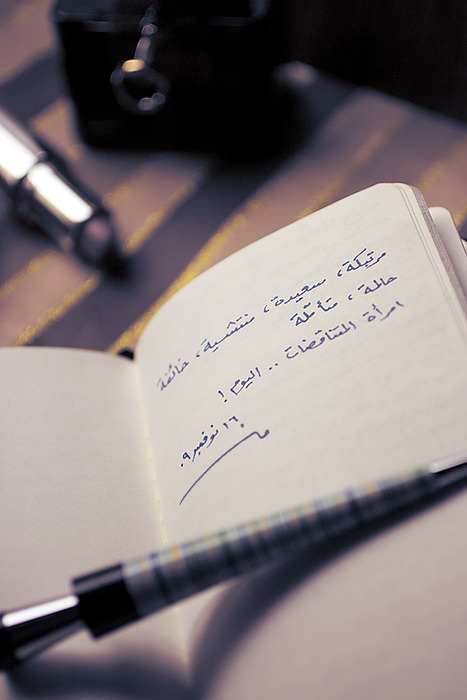 مرتبكة، سعيدة، منتشية، خائفة
حالمة، متأملة
امرأة المتناقضات .. اليوم !
١٦ نوفمبر ٠٩